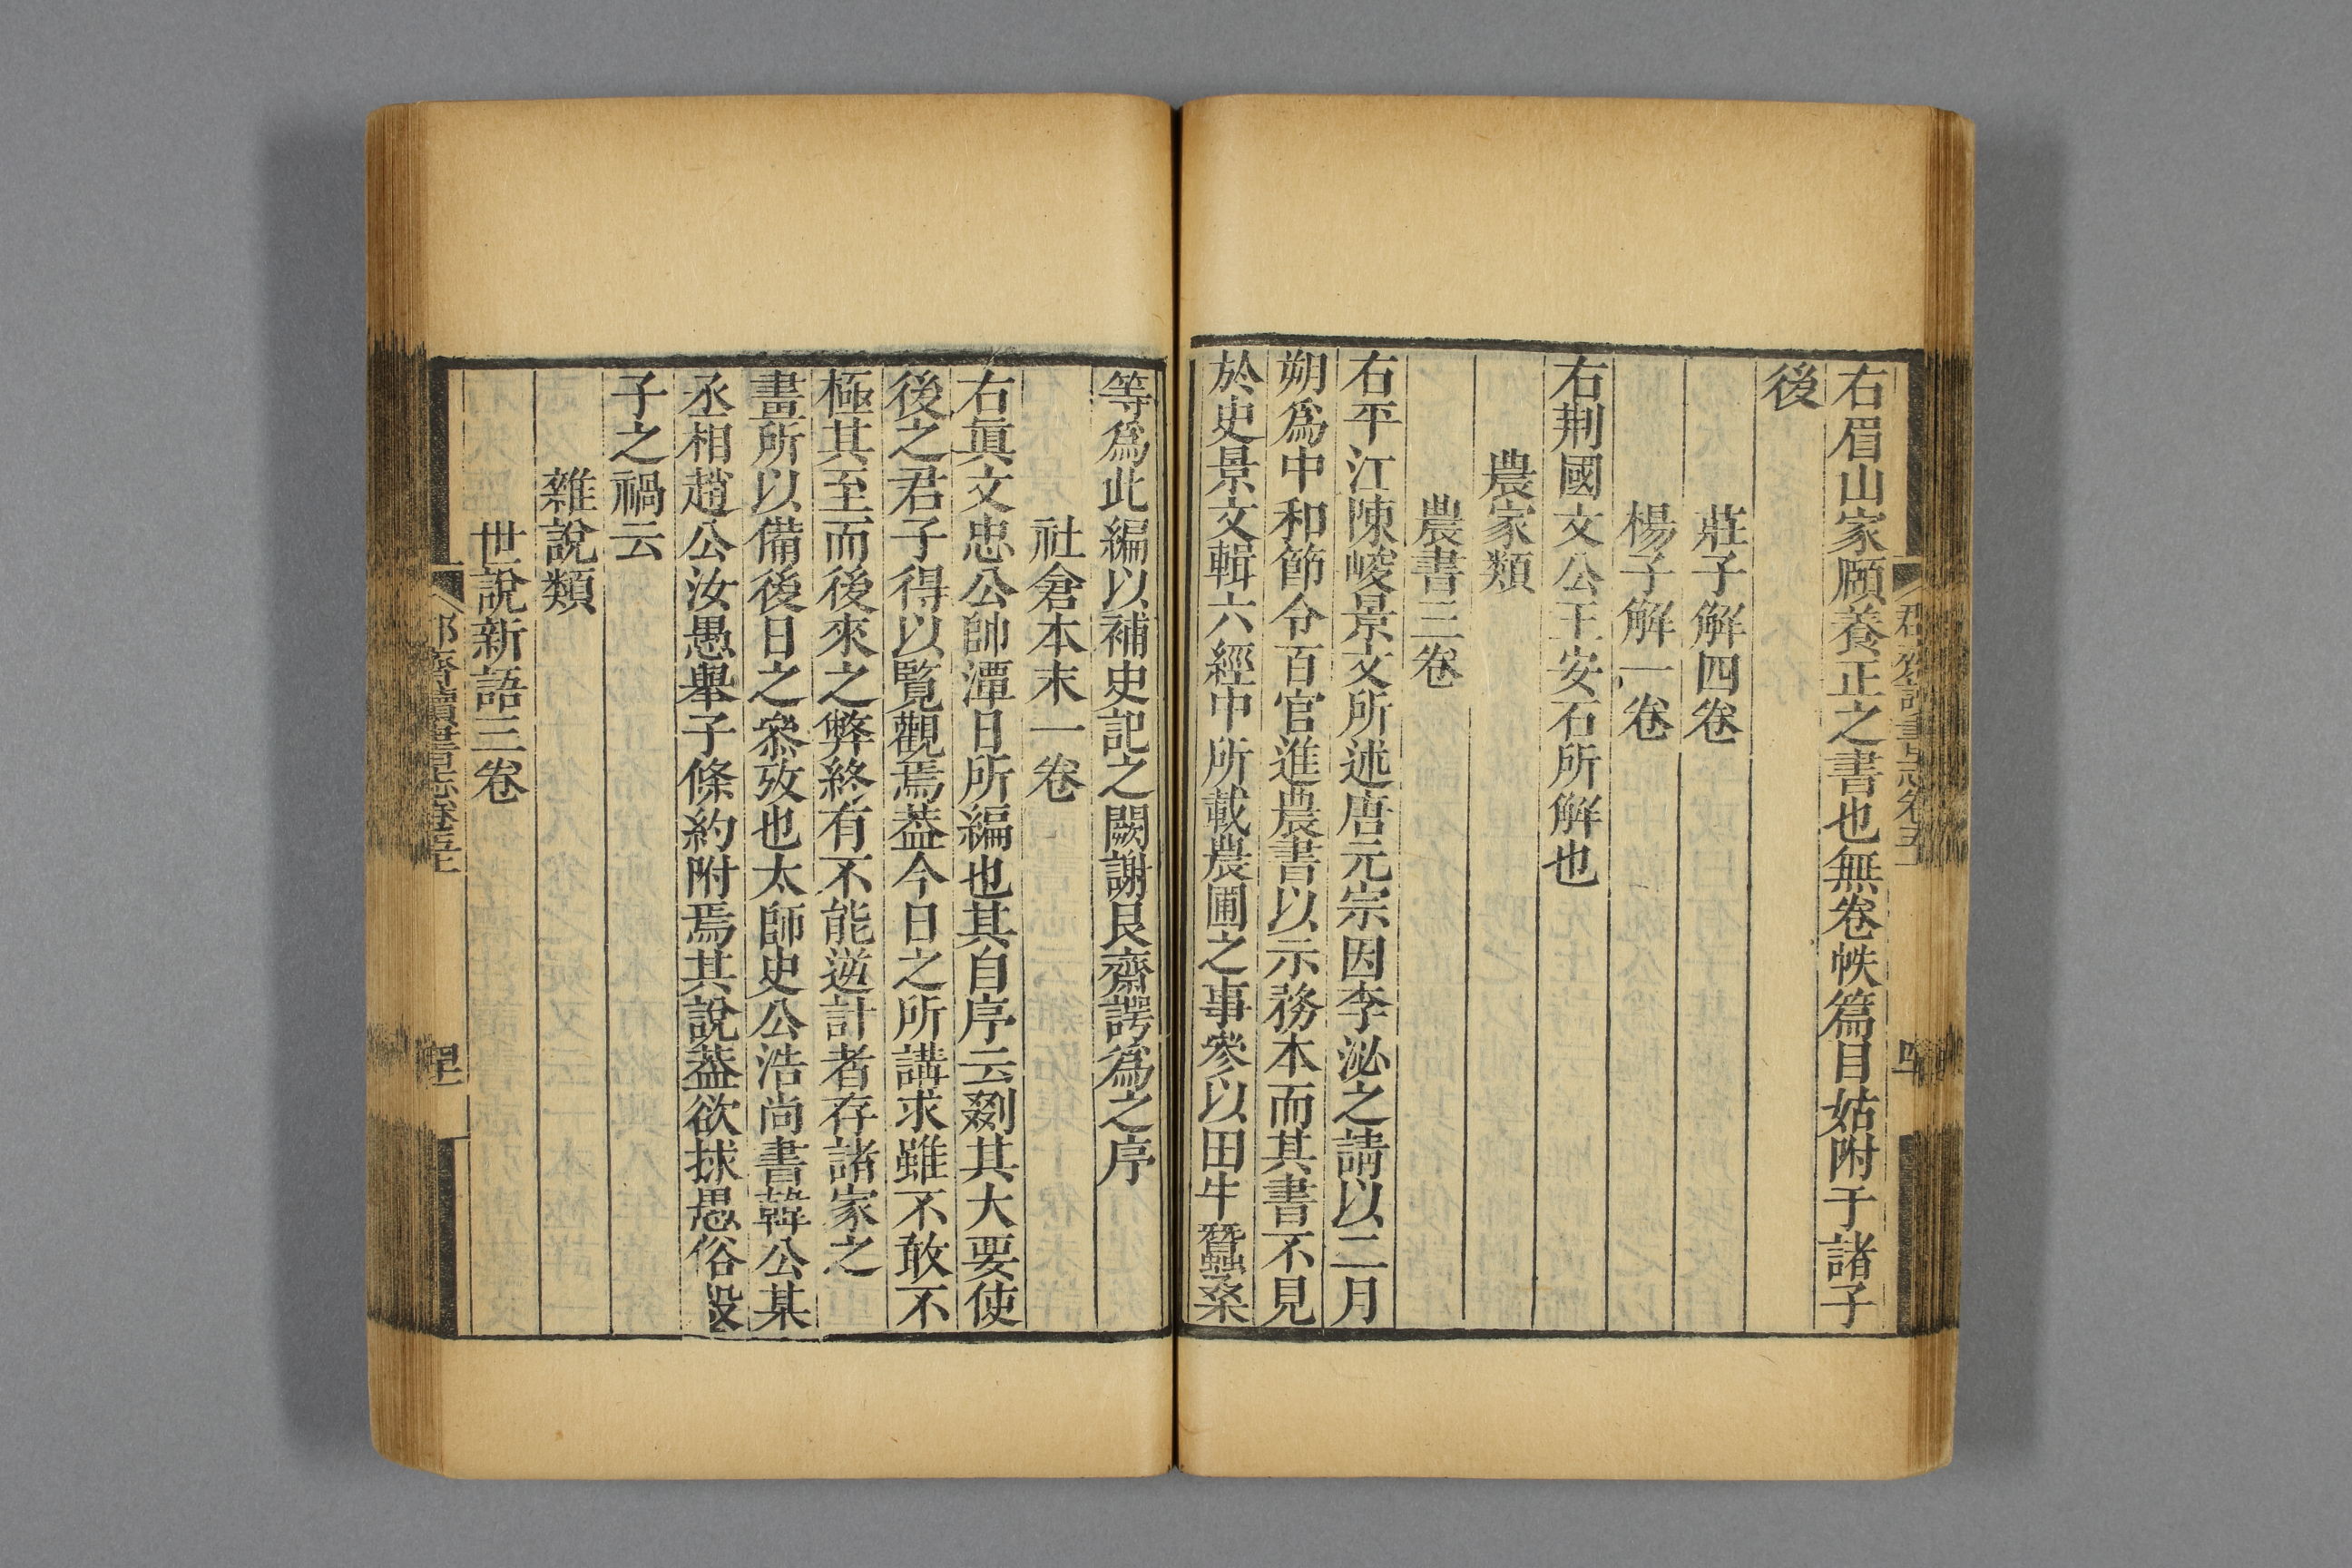 右眉山家頤養正之書也無卷帙篇目姑附于諸子
後
莊子解四卷
楊子解一卷
右荆國文公王安石所解也
農家類
農書三卷
右平江陳峻景文所述唐元宗因李泌之請以二月
朔爲中和節令百官進農書以示務本而其書不見
於史景文輯六經中所載農圃之事參以田牛蠶桑
等爲此編以補史記之闕謝艮齋諤爲之序
社倉本末一卷
右眞文忠公帥潭日所編也其自序云剟其大要使
後之君子得以覧觀焉葢今日之所講求雖不敢不
極其至而後來之弊終有不能逆計者存諸家之
畫所以備後日之叅攷也太師史公浩尚書韓公某
丞相趙公汝愚舉子條約附焉其說葢欲捄愚俗殺
子之禍云
雜說類
世說新語三卷
郡齋讀書志卷五上